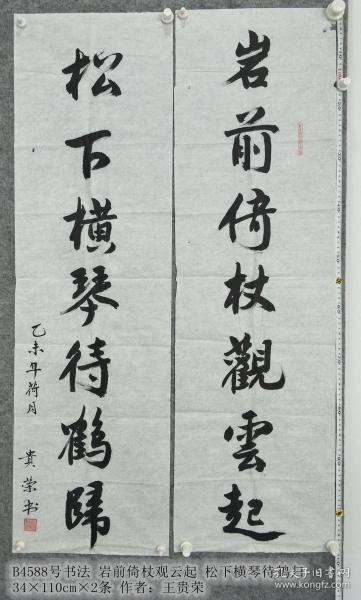 岩前倚杖觀雲起
松下横琴待鶴歸
乙未年荷月
貴荣书
B4588号书法 岩前倚杖观云起 松下横琴待鹤归
34×110cm×2条 作者：王贵荣